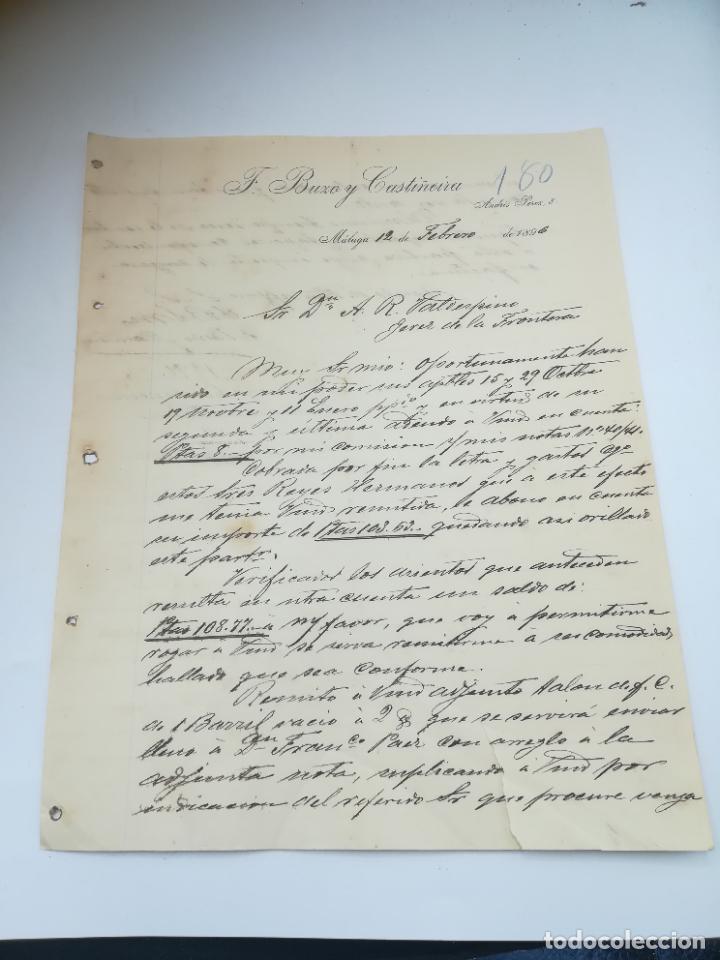 180
F. Buzo y Castiñeira
Andrés Pérez, 3
Málaga 12 de Febrero de 1896
Sr Dn A. R. Valdespino
Jerez de la Frontera
Muy Sr mio: Oportunamente han
sido en mi poder sus aptbles 15 y 29 Octbre
19 Novbre y 11 Enero ppdo, y en virtud de su
segunda y última abono à Vmd en cuenta:
Ptas 8.- por mi comision s/ mis notas Nos 40/41.
Cobrada por fin la letra y gastos cgo
estos Sres Reyes Hermanos que à este efecto
me tenia Vmd remitida, le abono en cuenta
su importe de Ptas 103.53.- quedando asi orillado
este partr.
Verificados los asientos que anteceden
resulta en ntra cuenta un saldo de:
Ptas 108.77.- à m/ favor, que voy à permitirme
rogar à Vmd se sirva remitirme à su comodidad,
hallado que sea conforme.
Remito à Vmd adjunto talon de f. C.
de 1 Barril vacio à 2 @ que se servirá enviar
lleno à Dn Franco Paez con arreglo à la
adjunta nota, suplicando à Vmd por
indicacion del referido Sr que procure venga
todocoleccion.net